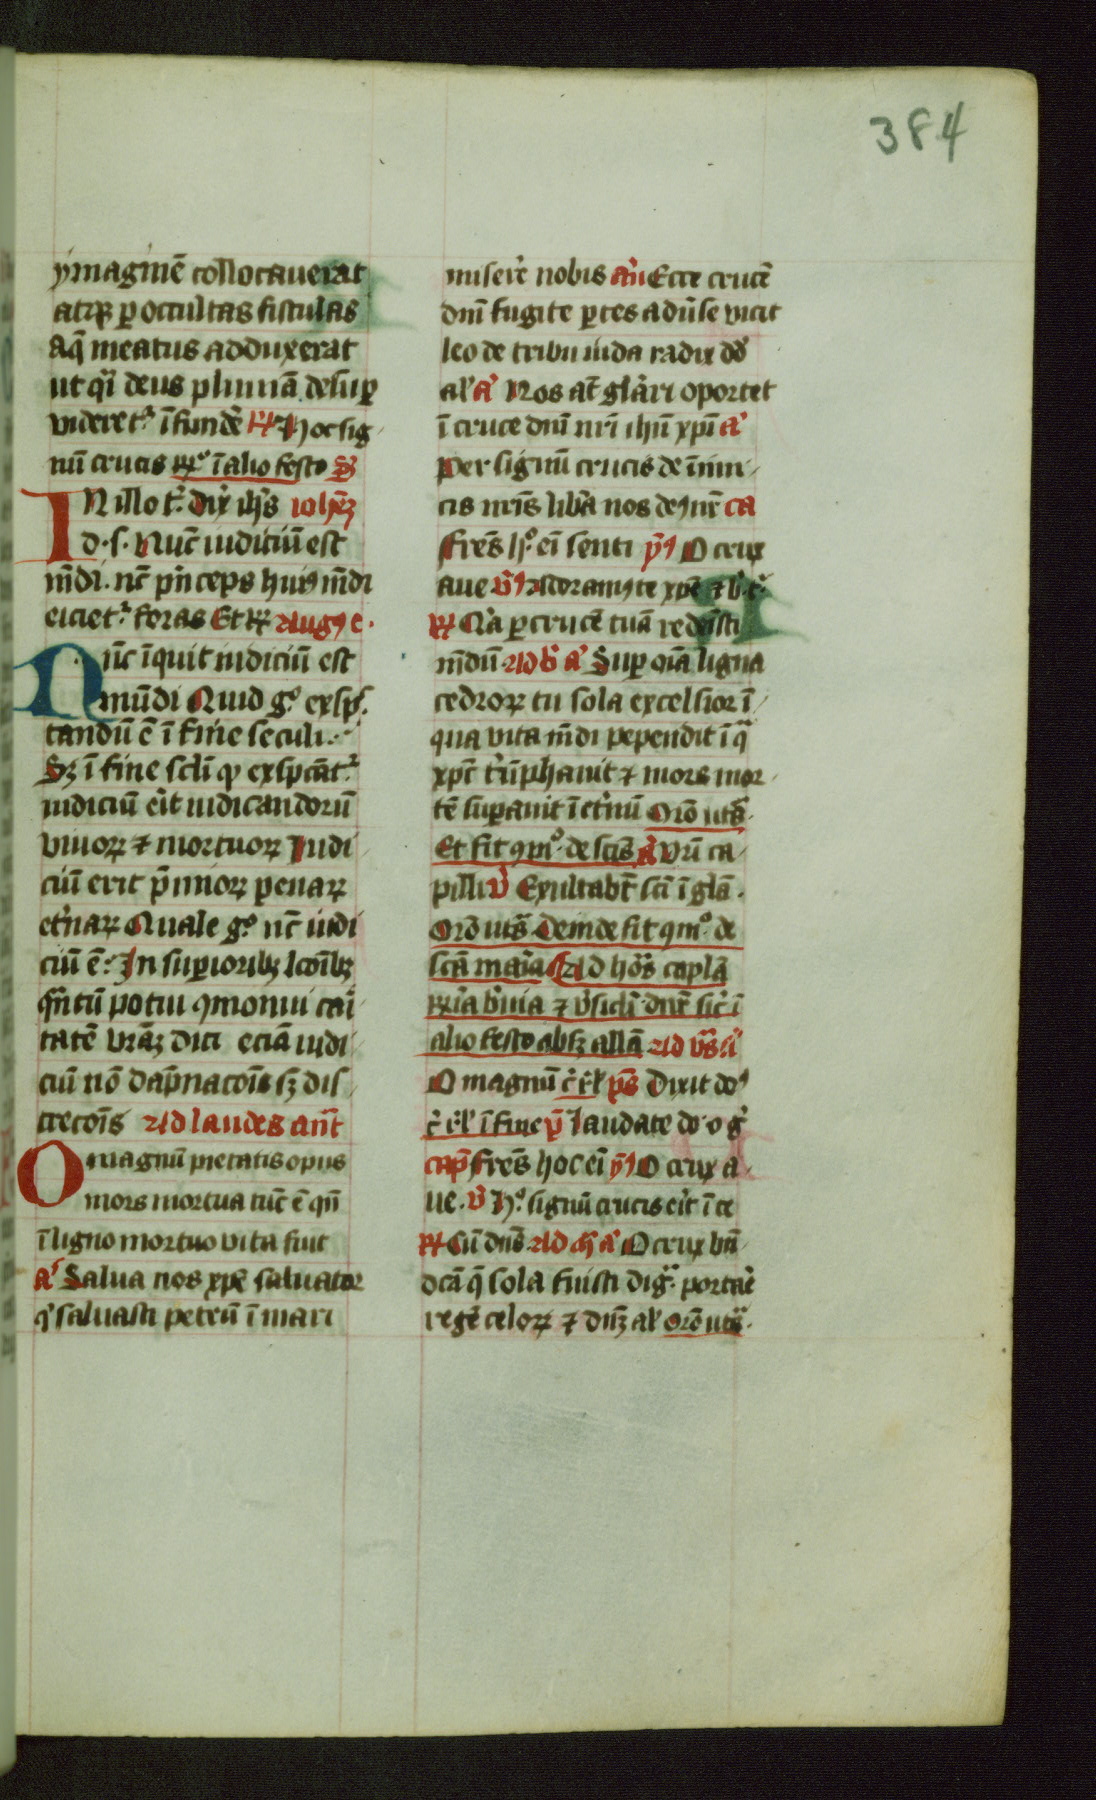 384
ymaginē collocauerat
atq ꝑ occultas fistulas
aq̄ meatus adduxerat
ut q̄i deus pluuiā desuꝑ
videret̉ īfundē ℟ Hoc sig
nū crucis ℟º ī alio festo
IN illo t̉: dix̄ ihs̄ ioħez
d. s. Nūc iudiciū est
mdi. nc̄ pn̄ceps huiꝰ mdi
eiciet̉ foras Et ℟ Augꝰe.
Nūc īquit iudiciū est
mūdi Quid gº exsp̄
tandū ē ī fine seculi.
Sꝫ ī fine scl̄i qͥ exspcāt̉
iudiciū eīt iudicandorū
viuoꝝ ⁊ mortuoꝝ Iudi
ciū erit p̄mioꝝ penaꝝ
et̉naꝝ Quale gº nc̄ iudi
ciū ē. In suꝑioribꝫ lcōībꝫ
qn̄tū potui ꝯmonui cai
tatē vrāꝫ dici eciā iudi
ciū nō dāpnacōis sꝫ dis
crecōis Ad laudes ant̄
O magnū pietatis opus
mors mortua tūc ē qn̄
ī ligno mortuo vita fuit
a̾ Salua nos xpe saluator
qͥ saluasti petrū ī mari
miserē nobis an̄ Ecce crucē
dn̄i fugite ꝑtes aduše vicit
leo de tribu iuda radix dd̄
al̾ a̾ Nos at̄ glāri oportet
ī cruce dn̄i nr̄i ihū xpī a̾
Per signū crucis de īimi
cis nr̄is libā nos deꝰ nr̄ ca
Fres̄ hº. eī senti ym̄ O crux
aue v̄ Adoramꝰ te xpē ⁊ b̄. t̉
℟ Qā ꝑ crucē tuā redēisti
mdū Ad b̄ a̾ Suꝑ oīa ligna
cedroꝝ tu sola excelsior ī
qua vita mdi pependit ī qͣ
xpc̄ t̉ūphauit ⁊ mors mor
tē suꝑauit ī et̉nū Orō uts̄
Et fit ꝯmº. de scīs a̾ Vrī ca
pilli v̄ Exultabt̄ scī ī glā.
Orō uts̄ Deinde fit ꝯmº. de
scā maīa Ad hōs capla
℟ia b̄uia ⁊ v̄sicl̄i dn̄r sic̄ ī
alio festo absꝫ allā Ad vs̄ a̾
O magnū c̄ r̄l̾ ps̄ Dixit doꝰ
c̄ r̄l̾ ī fine p̄ laudate do. o ḡ
cap̄ Fres̄ hoc eī ym̄ O crux a
ue. v̄ Hº signū crucis eīt ī ce
℟ Cū dn̄s Ad m̄ a̾ O crux bn̄
dcā q̄ sola fuisti digͣ. portaē
regē celoꝝ ⁊ dn̄ꝫ al̾ orō uts̄.